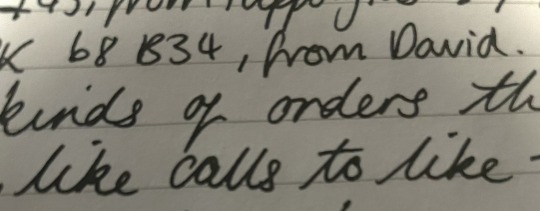 from
K 68 B34, from David.
kinds of orders th
like calls to like -